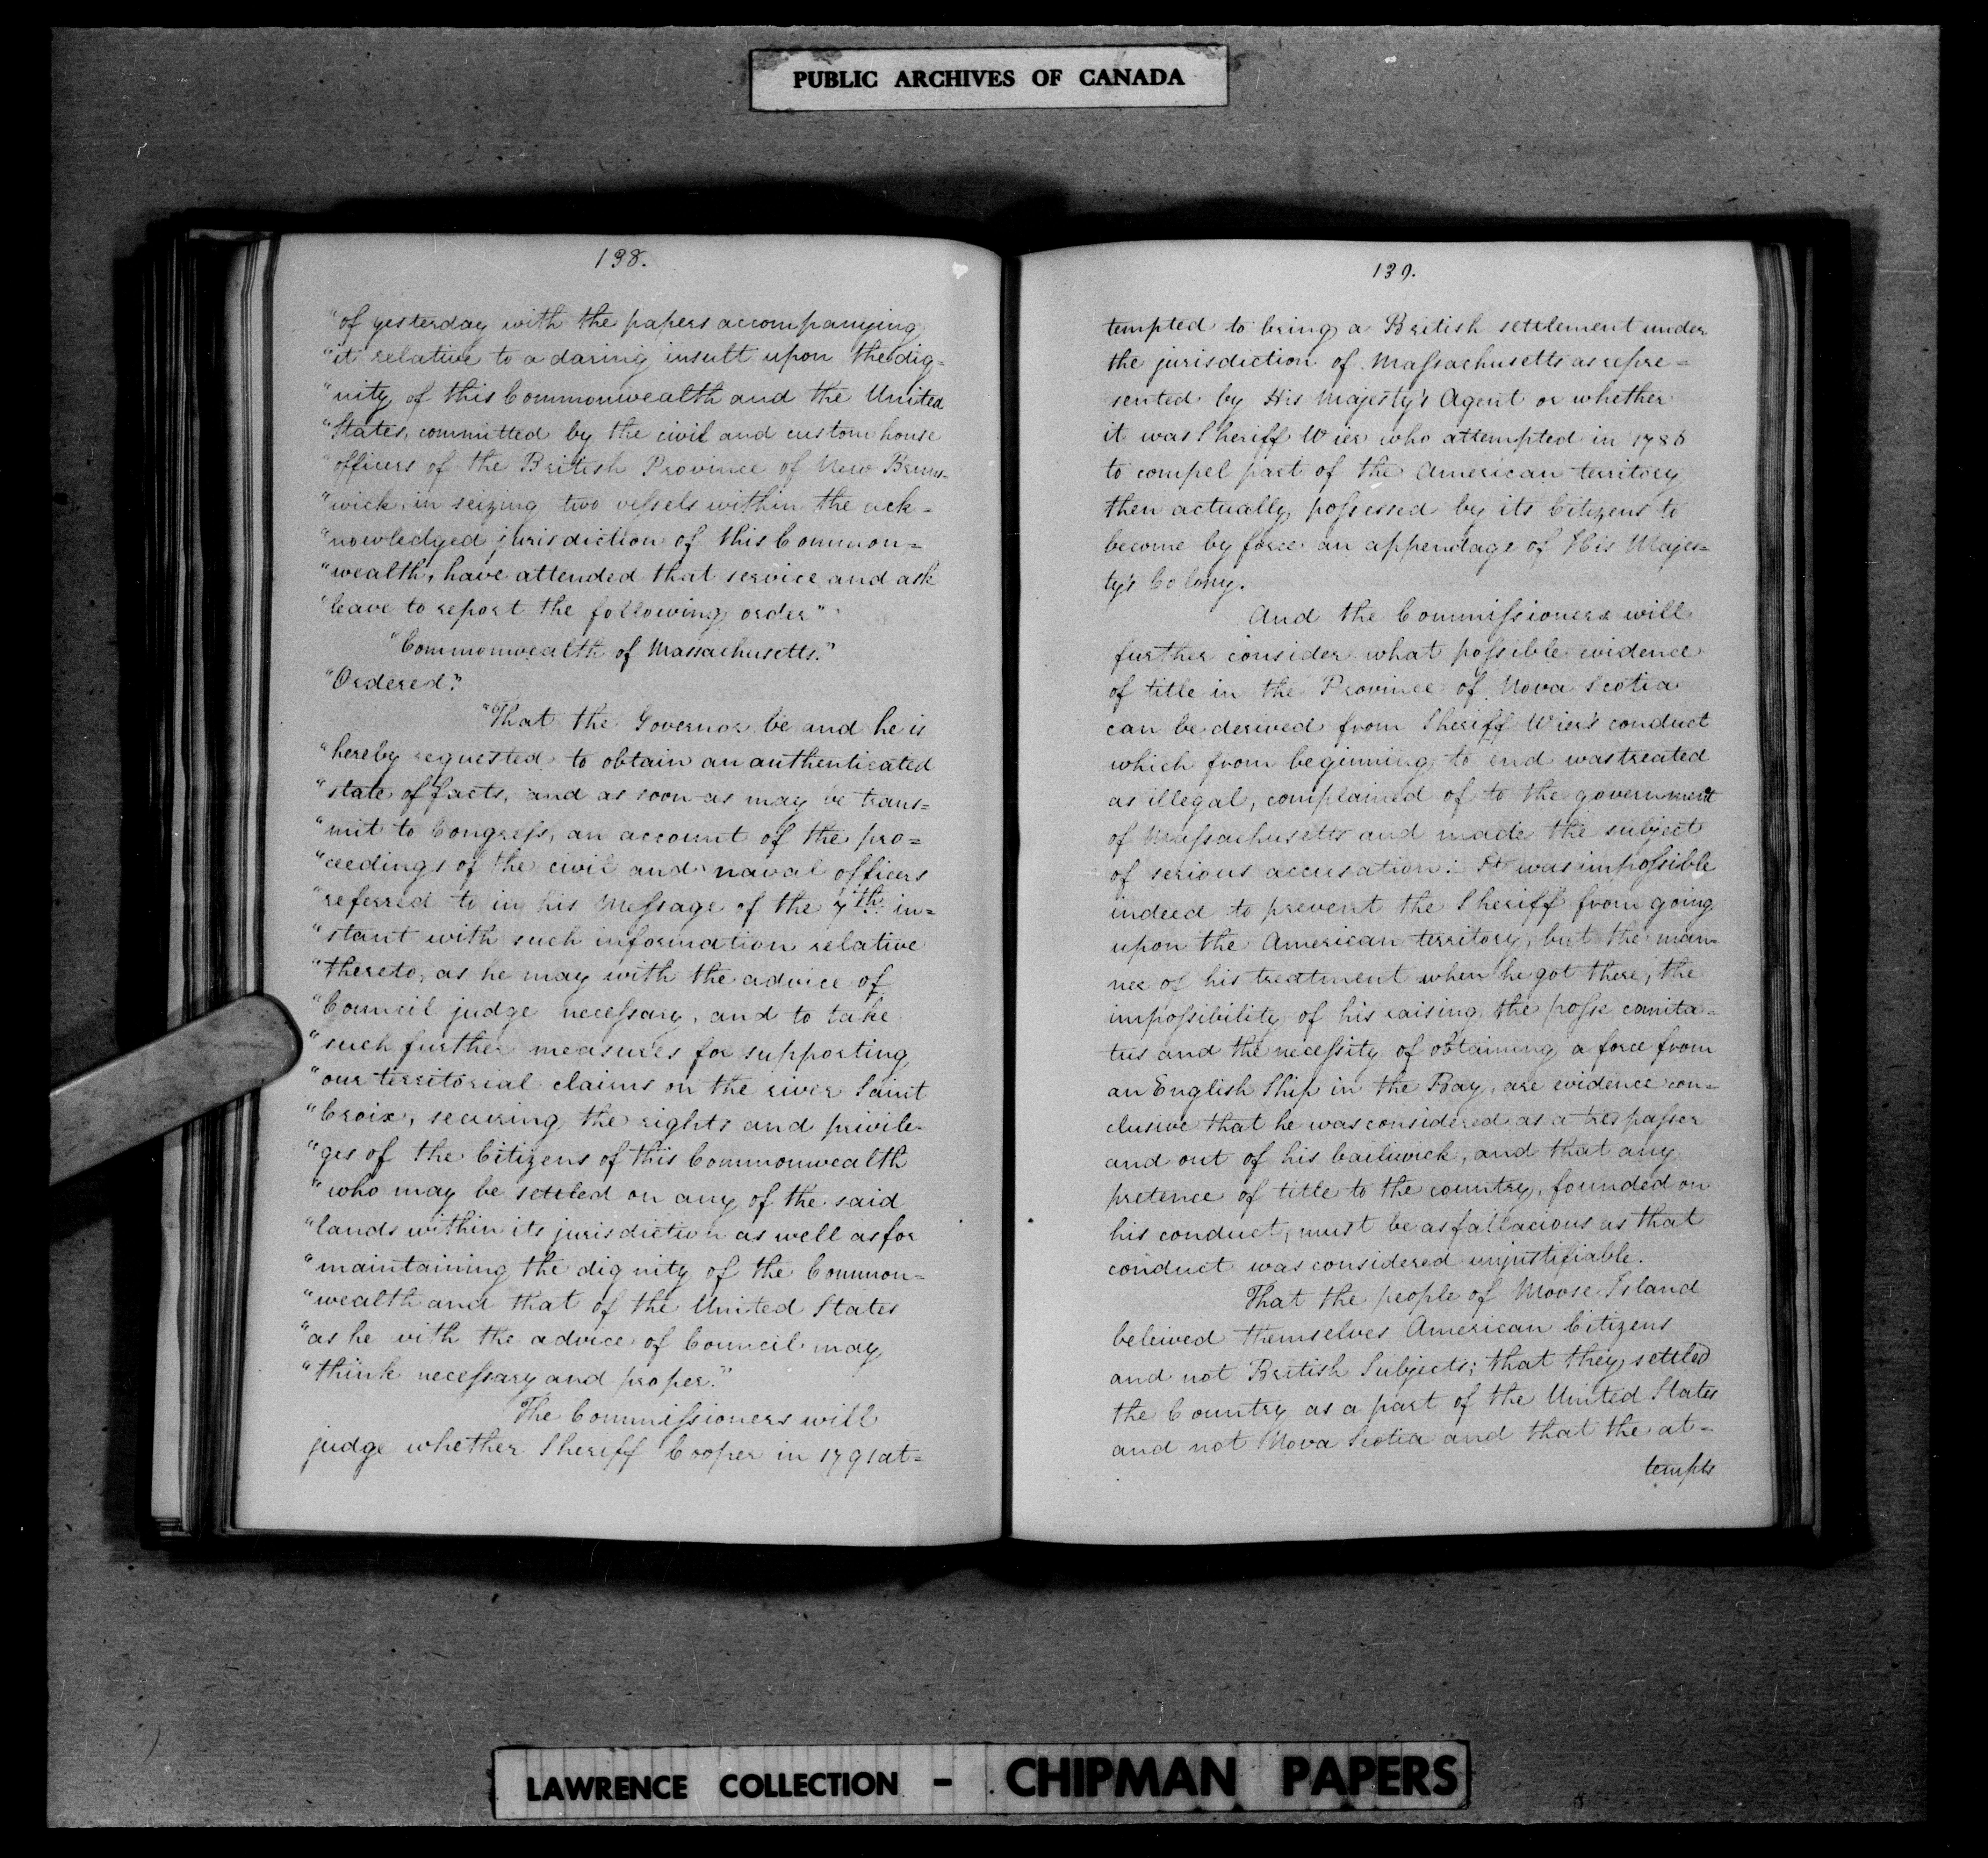 PUBLIC ARCHIVES OF CANADA
138.
"of yesterday with the papers accompanying
"it relative to a daring insult upon the dig=
"nity of this Commonwealth and the United
"States, committed by the civil and custom house
"officers of the British Province of New Bruns-
"wick, in seizing two vessels within the ack=
"nowledged jurisdiction of this Common=
"wealth, have attended that service and ask
"leave to report the following order"
"Commonwealth of Massachusetts."
"Ordered."
"That the Governor be and he is
"hereby requested to obtain an authenticated
"state of facts, and as soon as may be trans=
"mit to Congress, an account of the pro=
"ceedings of the civil and naval officers
"referred to in his Message of the 7th in=
"stant with such information relative
"thereto, as he may with the advice of
"Council judge necessary, and to take
"such further measures for supporting
"our territorial claims on the river Saint
"Croix, securing the rights and privile-
"ges of the Citizens of this Commonwealth
"who may be settled on any of the said
"lands within its jurisdiction as well as for
"maintaining the dignity of the Common=
"wealth and that of the United States
"as he with the advice of Council may
"think necessary and proper."
The Commissioners will
judge whether Sheriff Cooper in 1791 at=
139.
tempted to bring a British settlement under
the jurisdiction of Massachusetts as repre=
sented by His Majesty's Agent or whether
it was Sheriff Wier who attempted in 1786
to compel part of the American territory
then actually possessed by its Citizens to
become by force an appendage of His Majes=
ty's Colony.
And the Commissioners will
further consider what possible evidence
of title in the Province of Nova Scotia
can be derived from Sheriff Wier's conduct
which from beginning to end was treated
as illegal, complained of to the government
of Massachusetts and made the subject
of serious accusation: It was impossible
indeed to prevent the Sheriff from going
upon the American territory, but the man-
ner of his treatment when he got there, the
impossibility of his raising the posse comita=
tus and the necessity of obtaining a force from
an English Ship in the Bay, are evidence con=
clusive that he was considered as a trespasser
and out of his bailiwick, and that any
pretence of title to the country, founded on
his conduct, must be as fallacious as that
conduct was considered unjustifiable.
That the people of Moose Island
beleived themselves American Citizens
and not British Subjects; that they settled
the Country as a part of the United States
and not Nova Scotia and that the at=
tempts
LAWRENCE COLLECTION - CHIPMAN PAPERS